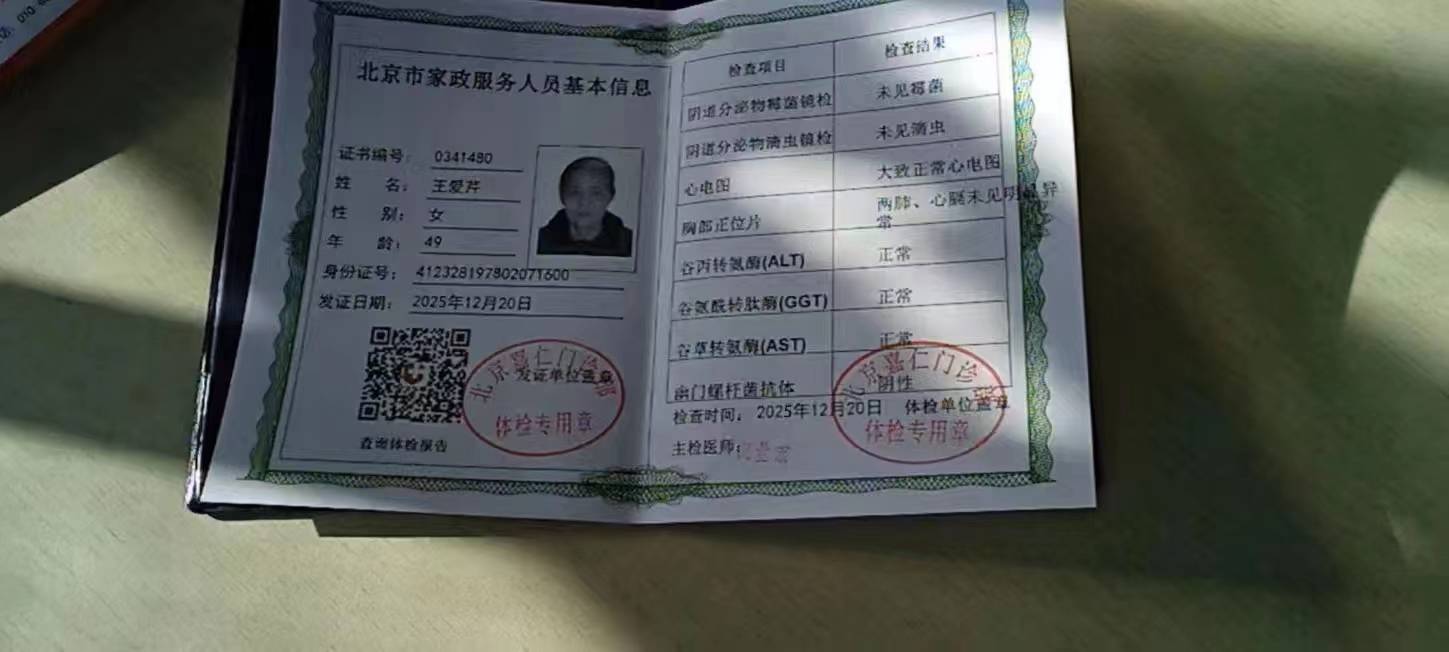 北京市家政服务人员基本信息
证书编号： 0341480
姓 名： 王爱芹
性 别： 女
年 龄： 49
身份证号： 412328197802071600
发证日期： 2025年12月20日
发证单位盖章
北京嘉仁门诊部
体检专用章
查询体检报告
检查项目 检查结果
阴道分泌物霉菌镜检 未见霉菌
阴道分泌物滴虫镜检 未见滴虫
心电图 大致正常心电图
胸部正位片 两肺、心膈未见明显异常
谷丙转氨酶(ALT) 正常
谷氨酰转肽酶(GGT) 正常
谷草转氨酶(AST) 正常
幽门螺杆菌抗体 阴性
检查时间： 2025年12月20日 体检单位盖章
主检医师：
北京嘉仁门诊部
体检专用章